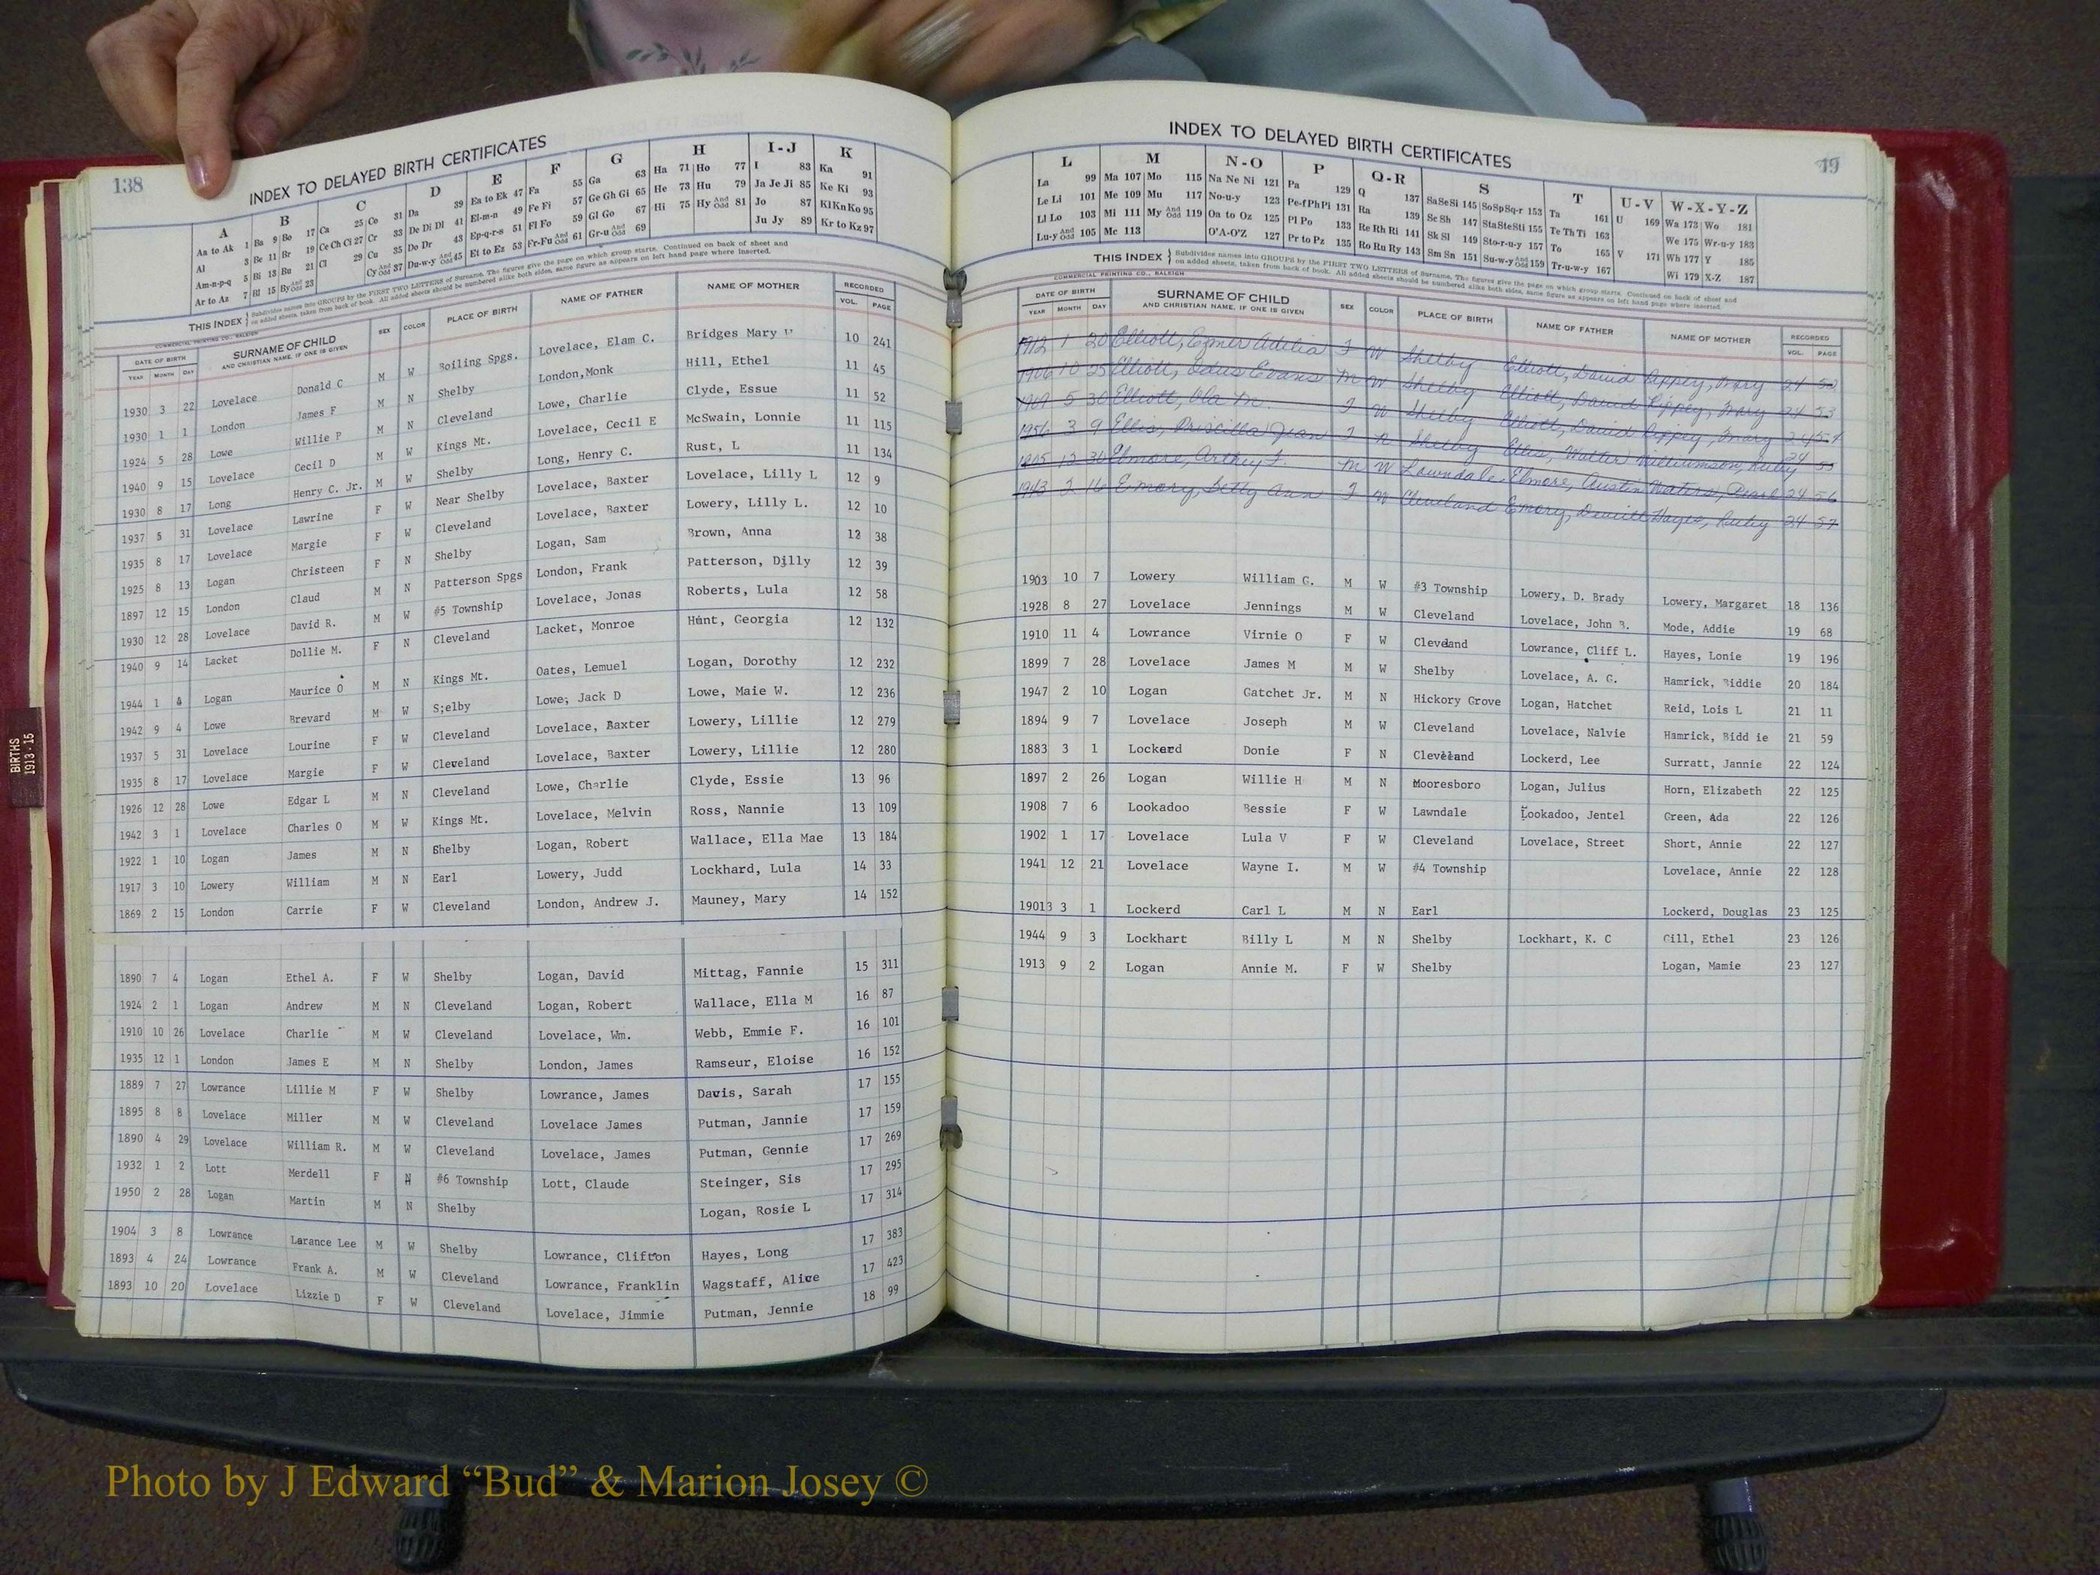 138
INDEX TO DELAYED BIRTH CERTIFICATES
A B C D E F G H I-J K
Aa to Ak 1 Ba 9 Bo 17 Ca 25 Co 31 Da 39 Ea to Ek 47 Fa 55 Ga 63 Ha 71 Ho 77 I 83 Ka 91
Al 3 Be 11 Br 19 Ce Ch Ci 27 Cr 33 De Di Dl 41 El-m-n 49 Fe Fi 57 Ge Gh Gi 65 He 73 Hu 79 Ja Je Ji 85 Ke Ki 93
Am-n-p-q 5 Bi 13 Bu 21 Cl 29 Cu 35 Do Dr 43 Ep-q-r-s 51 Fl Fo 59 Gl Go 67 Hi 75 Hy And Odd 81 Jo 87 Kl Kn Ko 95
Ar to Az 7 Bl 15 By And Odd 23 Cy And Odd 37 Du-w-y And Odd 45 Et to Ez 53 Fr-Fu And Odd 61 Gr-u And Odd 69 Ju Jy 89 Kr to Kz 97
THIS INDEX Subdivides names into GROUPS by the FIRST TWO LETTERS of Surname. The figures give the page on which group starts. Continued on back of sheet and
on added sheets, taken from back of book. All added sheets should be numbered alike both sides, same figure as appears on left hand page where inserted.
COMMERCIAL PRINTING CO., RALEIGH
DATE OF BIRTH SURNAME OF CHILD SEX COLOR PLACE OF BIRTH NAME OF FATHER NAME OF MOTHER RECORDED
YEAR MONTH DAY AND CHRISTIAN NAME, IF ONE IS GIVEN VOL. PAGE
1930 3 22 Lovelace Donald C M W Boiling Spgs. Lovelace, Elam C. Bridges Mary 10 241
1930 1 1 London James F M N Shelby London,Monk Hill, Ethel 11 45
1924 5 28 Lowe Willie P M N Cleveland Lowe, Charlie Clyde, Essue 11 52
1940 9 15 Lovelace Cecil D M W Kings Mt. Lovelace, Cecil E McSwain, Lonnie 11 115
1930 8 17 Long Henry C. Jr. M W Shelby Long, Henry C. Rust, L 11 134
1937 5 31 Lovelace Lawrine F W Near Shelby Lovelace, Baxter Lovelace, Lilly L 12 9
1935 8 17 Lovelace Margie F W Cleveland Lovelace, Baxter Lowery, Lilly L. 12 10
1925 8 13 Logan Christeen F N Shelby Logan, Sam Brown, Anna 12 38
1897 12 15 London Claud M N Patterson Spgs London, Frank Patterson, Dilly 12 39
1930 12 28 Lovelace David R. M W #5 Township Lovelace, Jonas Roberts, Lula 12 58
1940 9 14 Lacket Dollie M. F N Cleveland Lacket, Monroe Hunt, Georgia 12 132
1944 1 4 Logan Maurice O M N Kings Mt. Oates, Lemuel Logan, Dorothy 12 232
1942 9 4 Lowe Brevard M W S;elby Lowe, Jack D Lowe, Maie W. 12 236
1937 5 31 Lovelace Lourine F W Cleveland Lovelace, Baxter Lowery, Lillie 12 279
1935 8 17 Lovelace Margie F W Cleveland Lovelace, Baxter Lowery, Lillie 12 280
1926 12 28 Lowe Edgar L M N Cleveland Lowe, Charlie Clyde, Essie 13 96
1942 3 1 Lovelace Charles O M W Kings Mt. Lovelace, Melvin Ross, Nannie 13 109
1922 1 10 Logan James M N Shelby Logan, Robert Wallace, Ella Mae 13 184
1917 3 10 Lowery William M N Earl Lowery, Judd Lockhard, Lula 14 33
1869 2 15 London Carrie F W Cleveland London, Andrew J. Mauney, Mary 14 152
1890 7 4 Logan Ethel A. F W Shelby Logan, David Mittag, Fannie 15 311
1924 2 1 Logan Andrew M N Cleveland Logan, Robert Wallace, Ella M 16 87
1910 10 26 Lovelace Charlie M W Cleveland Lovelace, Wm. Webb, Emmie F. 16 101
1935 12 1 London James E M N Shelby London, James Ramseur, Eloise 16 152
1889 7 27 Lowrance Lillie M F W Shelby Lowrance, James Davis, Sarah 17 155
1895 8 8 Lovelace Miller M W Cleveland Lovelace James Putman, Jannie 17 159
1890 4 29 Lovelace William R. M W Cleveland Lovelace, James Putman, Gennie 17 269
1932 1 2 Lott Merdell F N #6 Township Lott, Claude Steinger, Sis 17 295
1950 2 28 Logan Martin M N Shelby Logan, Rosie L 17 314
1904 3 8 Lowrance Larance Lee M W Shelby Lowrance, Clifton Hayes, Long 17 383
1893 4 24 Lowrance Frank A. M W Cleveland Lowrance, Franklin Wagstaff, Alice 17 423
1893 10 20 Lovelace Lizzie D F W Cleveland Lovelace, Jimmie Putman, Jennie 18 99
INDEX TO DELAYED BIRTH CERTIFICATES
L M N-O P Q-R S T U-V W-X-Y-Z
La 99 Ma 107 Mo 115 Na Ne Ni 121 Pa 129 Q 137 Sa Se Si 145 So Sp Sq-r 153 Ta 161 U 169 Wa 173 Wo 181
Le Li 101 Me 109 Mu 117 No-u-y 123 Pe-f Ph Pi 131 Ra 139 Sc Sh 147 Sta Ste Sti 155 Te Th Ti 163 We 175 Wr-u-y 183
Ll Lo 103 Mi 111 My And Odd 119 Oa to Oz 125 Pl Po 133 Re Rh Ri 141 Sk Sl 149 Sto-r-u-y 157 To 165 V 171 Wh 177 Y 185
Lu-y And Odd 105 Mc 113 O'A-O'Z 127 Pr to Pz 135 Ro Ru Ry 143 Sm Sn 151 Su-w-y And Odd 159 Tr-u-w-y 167 Wi 179 X-Z 187
THIS INDEX Subdivides names into GROUPS by the FIRST TWO LETTERS of Surname. The figures give the page on which group starts. Continued on back of sheet and
on added sheets, taken from back of book. All added sheets should be numbered alike both sides, same figure as appears on left hand page where inserted.
COMMERCIAL PRINTING CO., RALEIGH
DATE OF BIRTH SURNAME OF CHILD SEX COLOR PLACE OF BIRTH NAME OF FATHER NAME OF MOTHER RECORDED
YEAR MONTH DAY AND CHRISTIAN NAME, IF ONE IS GIVEN VOL. PAGE
1912 1 20 Elliott, Adelia F W Shelby Elliott, David Rippey, Mary 24
1906 10 25 Elliott, Odus Evans M W Shelby Elliott, David Rippey, Mary 24 53
1909 5 30 Elliott, Ola M. F W Shelby Elliott, David Rippey, Mary 24 54
1956 3 9 Ellis, Priscilla Jean F N Shelby Ellis, Walter Williamson, Ruby 24 55
12 30 Elmore, M W Lawndale Elmore, Austin Waters, Pearl 24 56
1943 2 16 Emory, Betty Ann F W Cleveland Emory, Dewitt Hayes, Ruby 24 57
1903 10 7 Lowery William G. M W #3 Township Lowery, D. Brady Lowery, Margaret 18 136
1928 8 27 Lovelace Jennings M W Cleveland Lovelace, John B. Mode, Addie 19 68
1910 11 4 Lowrance Virnie O F W Cleveland Lowrance, Cliff L. Hayes, Lonie 19 196
1899 7 28 Lovelace James M M W Shelby Lovelace, A. G. Hamrick, Biddie 20 184
1947 2 10 Logan Gatchet Jr. M N Hickory Grove Logan, Hatchet Reid, Lois L 21 11
1894 9 7 Lovelace Joseph M W Cleveland Lovelace, Nalvie Hamrick, Bidd ie 21 59
1883 3 1 Lockerd Donie F N Cleveland Lockerd, Lee Surratt, Jannie 22 124
1897 2 26 Logan Willie H M N Mooresboro Logan, Julius Horn, Elizabeth 22 125
1908 7 6 Lookadoo Bessie F W Lawndale Lookadoo, Jentel Green, Ada 22 126
1902 1 17 Lovelace Lula V F W Cleveland Lovelace, Street Short, Annie 22 127
1941 12 21 Lovelace Wayne I. M W #4 Township Lovelace, Annie 22 128
19013 3 1 Lockerd Carl L M N Earl Lockerd, Douglas 23 125
1944 9 3 Lockhart Billy L M N Shelby Lockhart, K. C Gill, Ethel 23 126
1913 9 2 Logan Annie M. F W Shelby Logan, Mamie 23 127
BIRTHS
1913-15
Photo by J Edward “Bud” & Marion Josey ©